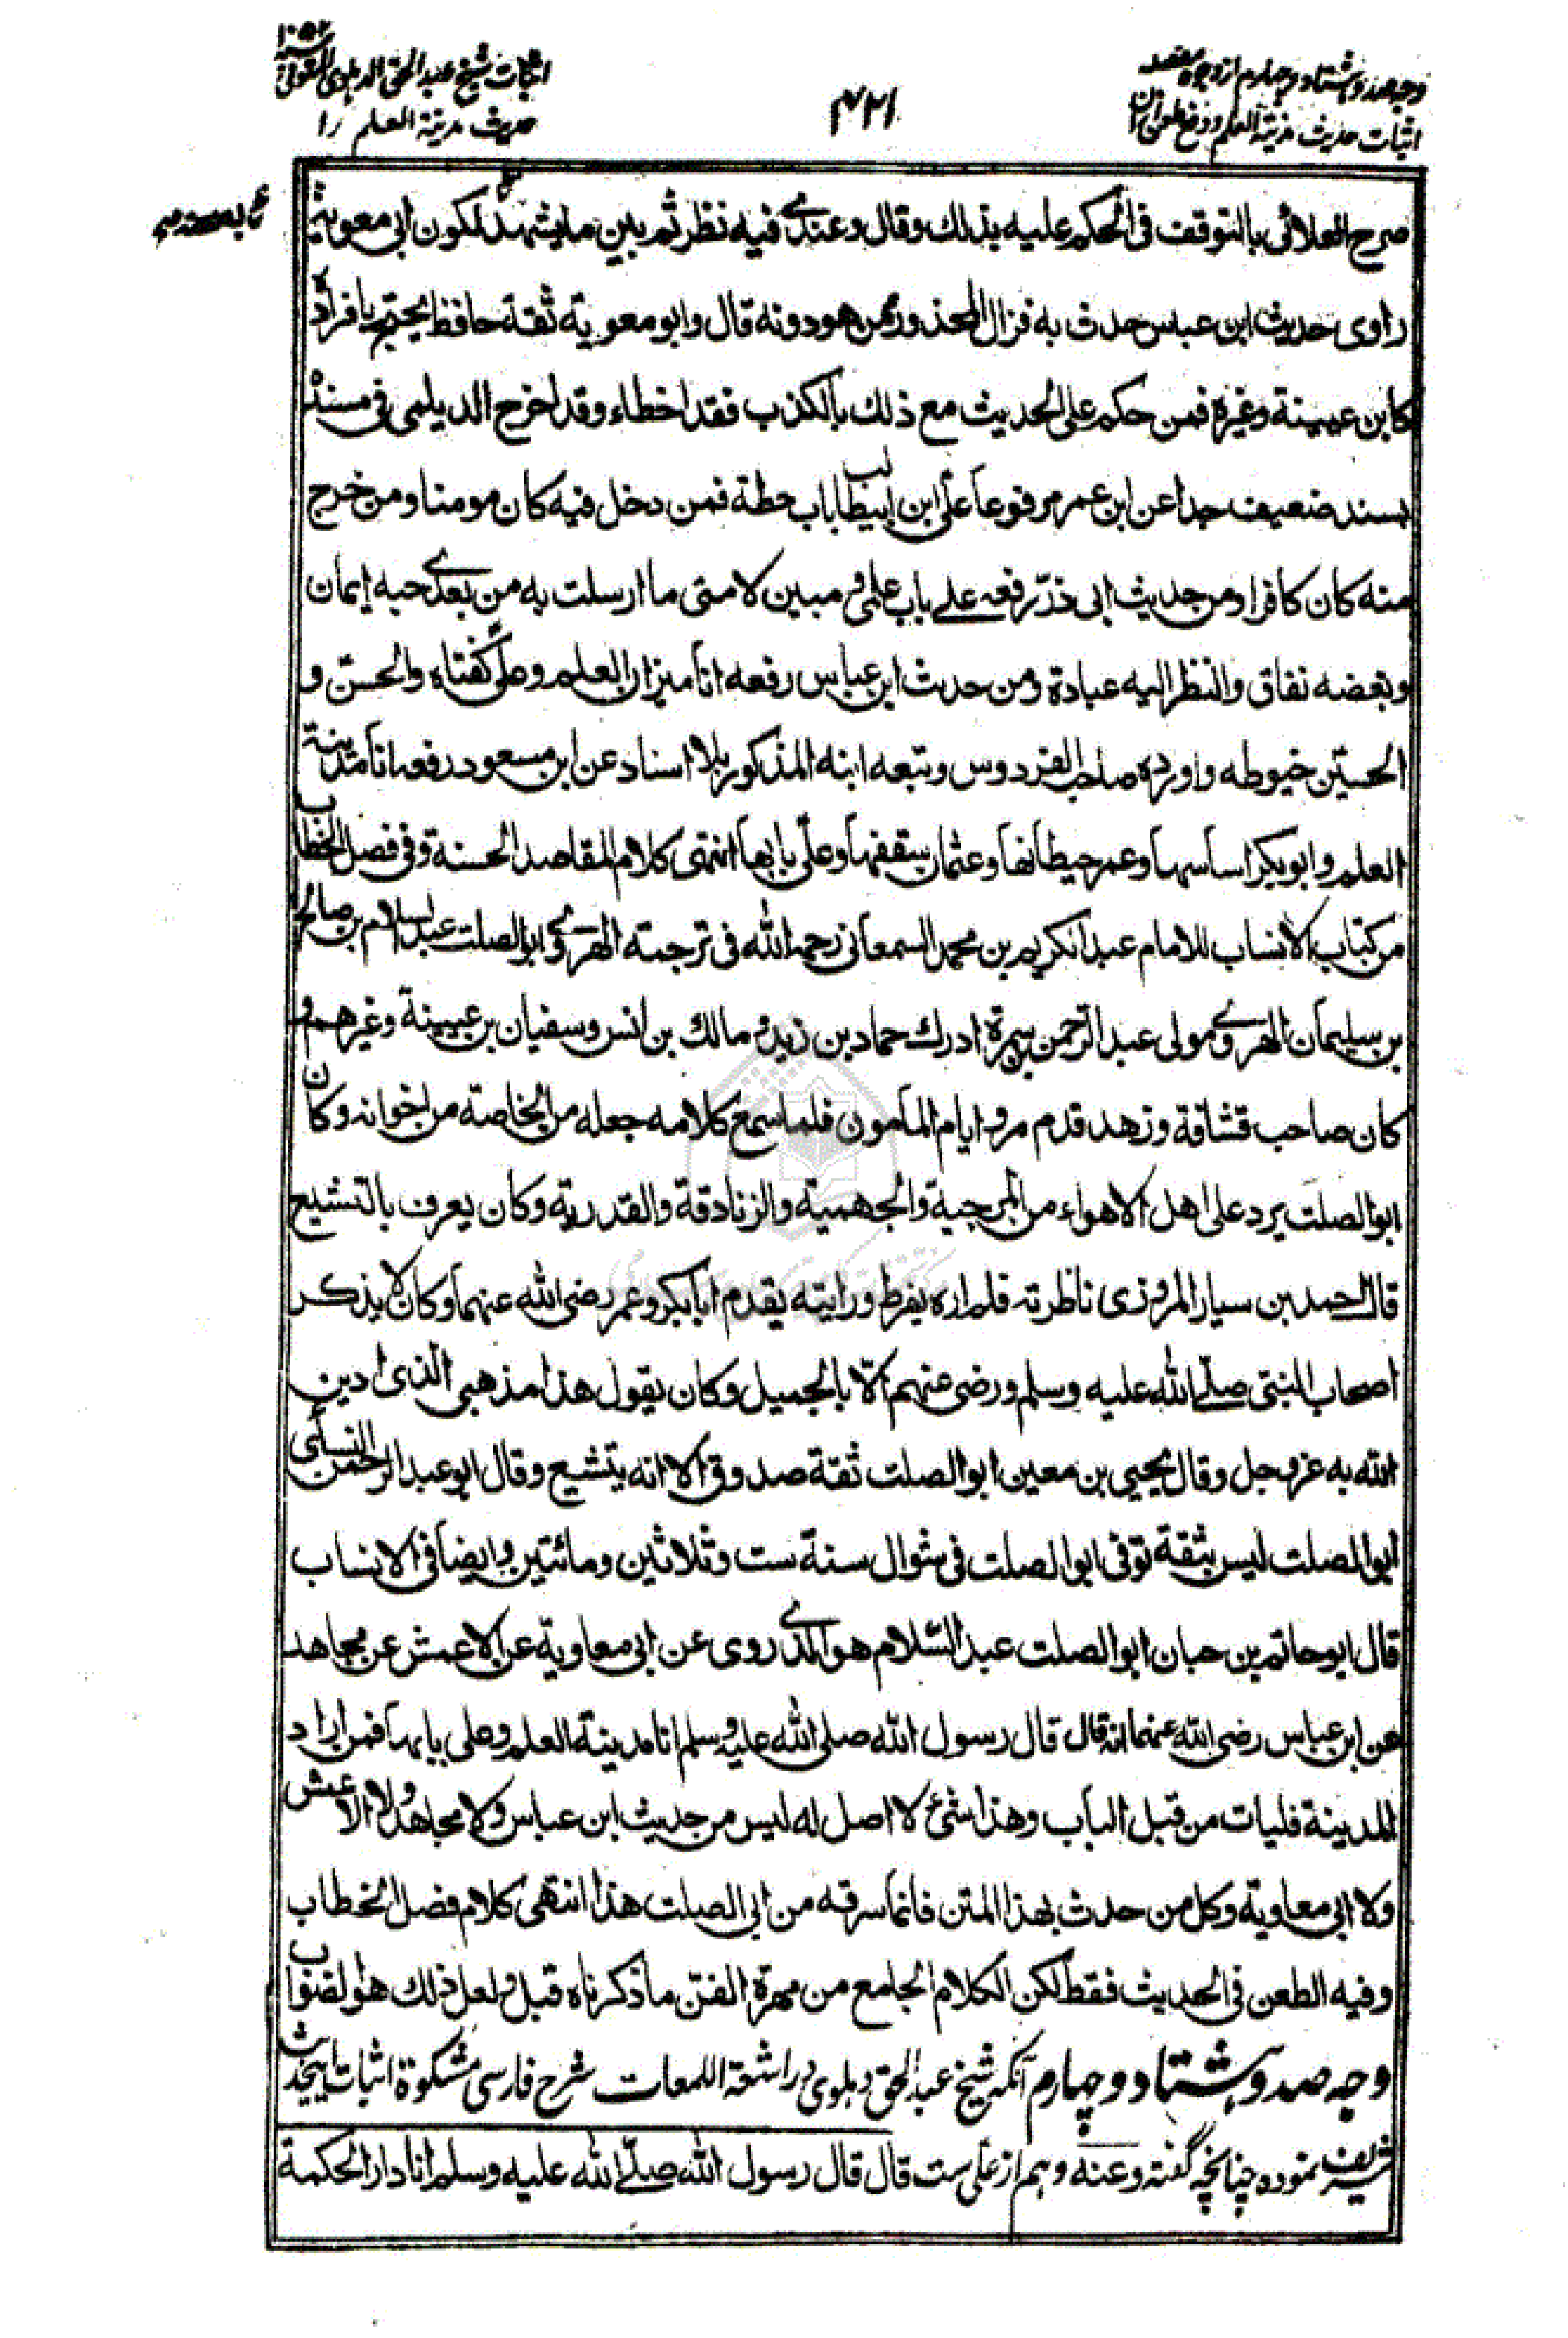 وجه صد و هشتاد و چهارم از وجوه مقصد
اثبات حدیث مدینة العلم و دفع طعن از ان
۴۲۱
اثبات شیخ عبد الحق الدهلوی المتوفی سنه ۱۰۵۲
حدیث مدینة العلم را
صرح العلائی بالتوقف فی الحکم علیه بذلک وقال وعندی فیه نظر ثم بین ما یشهد لکون ابی معویة
راوی حدیث ابن عباس حدث به فزال المحذور ممن هو دونه قال وابو معویة ثقة حافظ یحتج بافراده
کابن عیینة وغیره فمن حکم علی الحدیث مع ذلک بالکذب فقد اخطاء وقد اخرج الدیلمی فی مسنده
بسند ضعیف جدا عن ابن عمر مرفوعاً علی ابن ابیطالب باب حطة فمن دخل فیه کان مومنا ومن خرج
منه کان کافرا ومن حدیث ابی ذرّ رفعه علی باب علمی و مبین لامتی ما ارسلت به من بعدی حبه ایمان
وبغضه نفاق والنظر الیه عبادة ومن حدیث ابن عباس رفعه انا میزان العلم وعلی کفتاه والحسن و
الحسین خیوطه واورده صاحب الفردوس وتبعه ابنه المذکور بلا اسناد عن ابن مسعود رفعه انا مدینة
العلم وابو بکر اساسها وعمر حیطانها وعثمان سقفها وعلی بابها انتهی کلام المقاصد الحسنة وفی فصل الخطاب
من کتاب الانساب للامام عبد الکریم بن محمد السمعانی رحمه الله فی ترجمة الهروی ابو الصلت عبد السلام بن صالح
بن سلیمان الهروی مولی عبد الرحمن بن سمرة ادرک حماد بن زید و مالک بن انس وسفیان بن عیینة وغیرهم و
کان صاحب قشافة وزهد قدم مرو ایام المأمون فلما سمع کلامه جعله من الخاصة من اخوانه وکان
ابو الصلت یرد علی اهل الاهواء من المرجیة والجهمیة والزنادقة والقدریة وکان یعرف بالتشیع
قال احمد بن سیار المروزی ناظرته فلم اره یفرط ورایته یقدم ابا بکر وعمر رضی الله عنهما وکان لا یذکر
اصحاب النبی صلی الله علیه وسلم ورضی عنهم الّا بالجمیل وکان یقول هذا مذهبی الذی ادین
الله به عز وجل وقال یحیی بن معین ابو الصلت ثقة صدوق الا انه یتشیع وقال ابو عبد الرحمن النسائی
ابو الصلت لیس بثقة توفی ابو الصلت فی شوال سنة ست وثلاثین ومائتین و ایضاً فی الانساب
قال ابو حاتم بن حبان ابو الصلت عبد السّلام هو الذی روی عن ابی معاویة عن الاعمش عن مجاهد
عن ابن عباس رضی الله عنهما انه قال قال رسول الله صلی الله علیه وسلم انا مدینة العلم وعلی بابها فمن اراد
المدینة فلیات من قبل الباب وهذا شئ لا اصل له لیس من حدیث ابن عباس ولا مجاهد ولا الاعمش
ولا ابی معاویة وکل من حدث بهذا المتن فانما سرقه من ابی الصلت هذا انتهی کلام فصل الخطاب
وفیه الطعن فی الحدیث فقط لکن الکلام الجامع من مهرة الفن ما ذکرناه قبل و لعل ذلک هو الصواب
وجه صد و هشتاد و چهارم آنکه شیخ عبد الحق دهلوی در اشعة اللمعات شرح فارسی مشکوة اثبات اینحدیث
شریف نموده چنانچه گفته وعنه وهم از علی ست قال قال رسول الله صلّی الله علیه وسلم انا دار الحکمة